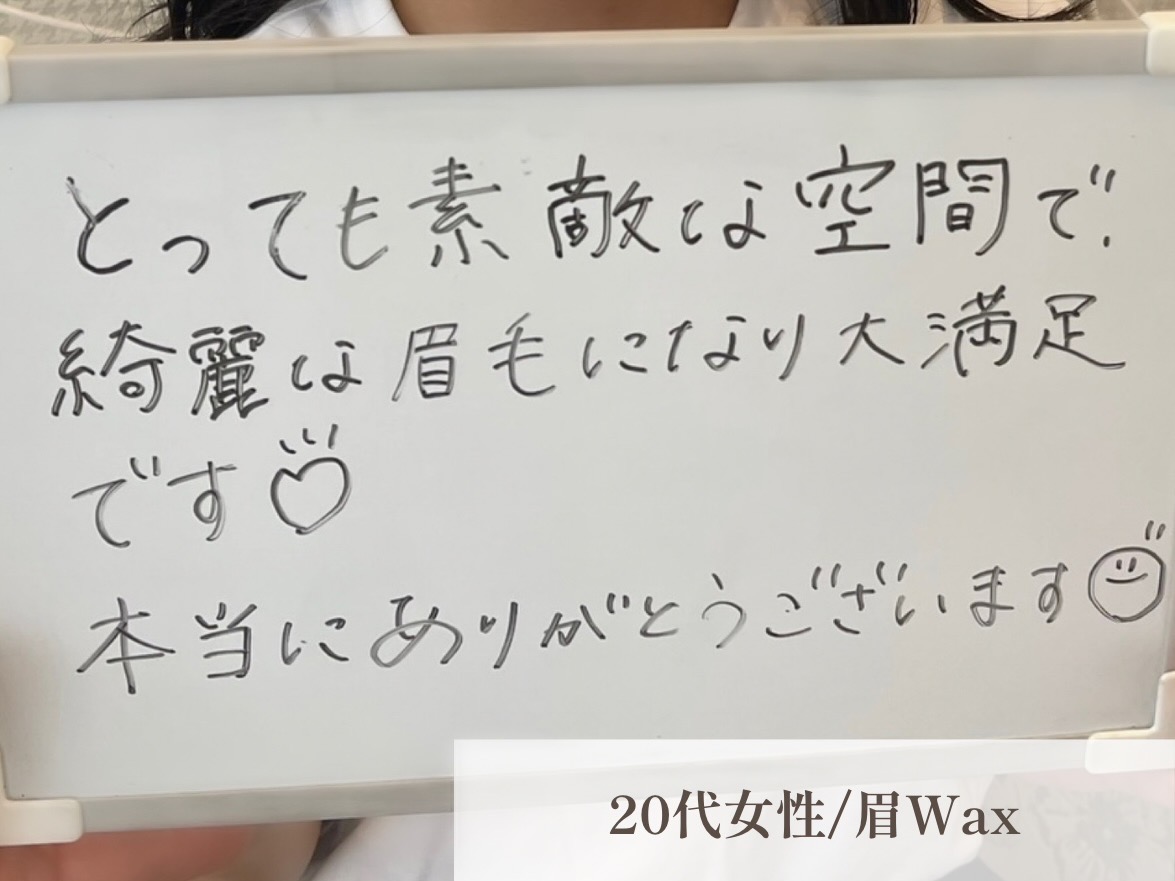 とっても素敵な空間で.
綺麗な眉毛になり大満足
です♡
本当にありがとうございます☺
20代女性/眉Wax